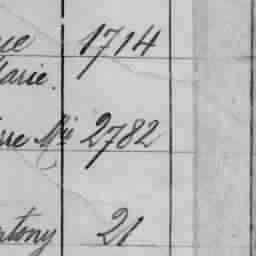 ue 1714
Marie.
rre Mie 2782
ntony 21